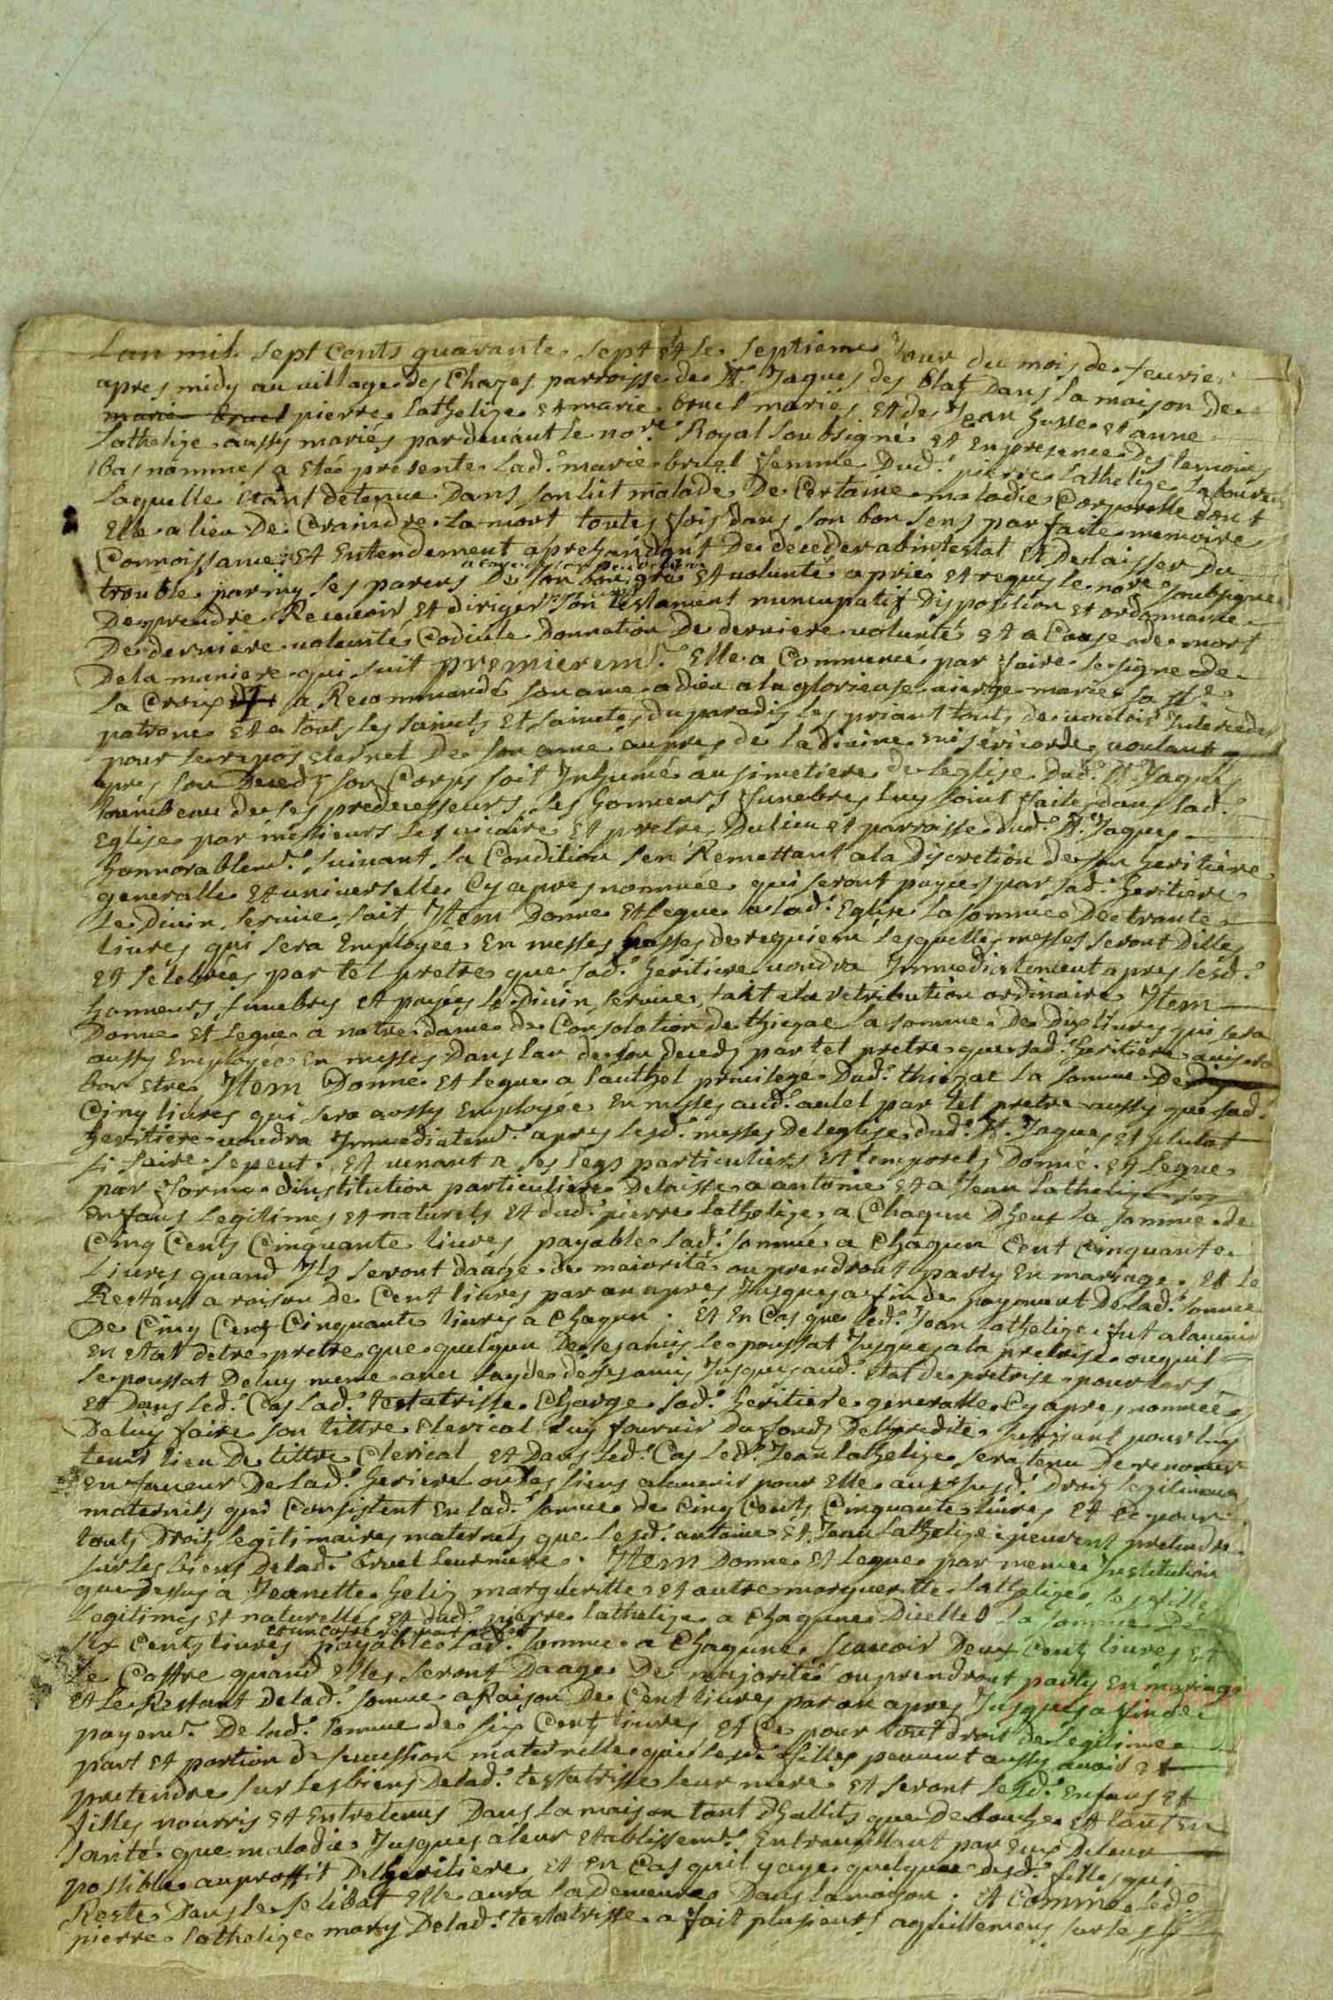 Lan mil sept cents quarante sept et le septieme Jour du mois de feurier
apres midy au village des Chazes parroisse de St Jaques des blat dans la maison de
marie bruel pierre Lathelize et marie bruel mariés et de Jean husse et anne
Lathelize aussy mariés pardeuant le nore Royal soubsigné et en presence des temoins
bas nommes a eté presente lad. marie bruel femme dud. pierre lathelize laboureur
laquelle étant detenue dans son lit malade de certaine maladie corporelle dont
Elle a lieu de craindre la mort toutes fois dans son bon sens parfaite memoire
Connoissance et Entendement aprehandant de deceder abintestat et delaisser du
trouble parmy ses parens de son bon gré et volunté a prié et requis le nore soubsigné
de prendre Receuoir et diriger son testament nuncupatif disposition et ordonnance
De derniere volunté Codicile Donnation De derniere volunté et a Cause de mort
De la maniere qui suit premierem.t Elle a Commencé par faire le signe de
la Croix a Recommandé son ame a dieu a la glorieuse vierge marie sa Ste
patrone et a touts les saints et saintes du paradis les priant touts de vouloir Interceder
pour le repos eternel de son ame aupres de la diuine miséricorde voulant
pres son Deceds son Corps soit Inhumé au simetiere de leglise dud. St Jaques
tombeau de ses predecesseurs les honneurs funebres luy soint faites dans lad.
Eglise par messieurs les vicaire et pretre du lieu et parroisse dud. St Jaques
honnorablem.t suiuant sa Condition s'en Remettant a la discretion de son heritiere
generalle et universelle Cy apres nommée qui seront payes par sad. heritiere
le Diuin seruice fait Item Donne et legue a lad. Eglise la somme De trante
liures qui sera Employée En messes basses de requiem lesquelles messes seront Dittes
et selebrées par tel pretre que sad. heritiere voudra Immediatement apres lesd.
honneurs funebres et payées le diuin seruice fait a la retribution ordinaire Item
Donne et legue a notre dame de Consolation de thiezac la somme De Dix liures qui sera
aussy Employée En messes Dans lan de son Deceds par tel pretre que sad. heritiere auisera
bon etre Item Donne et legue a lauthel priuilege Dud. thiezac la somme De
Cinq liures qui sera aussy Employée En messes aud. autel par tel pretre aussy que sad.
heritiere voudra Immediatem.t apres lesd. messes De leglise dud. St Jaques et plutot
si faire se peut. Et venant a ses legs particuliers et temporels Donne et legue
par forme dinstitution particuliere Delaisse a antoine et a Jean lathelize ses
Enfans legitimes et naturels et dud. pierre lathelize a Chaqun Dheux la somme de
Cinq Cents Cinquante liures payable lad. somme a Chaqun Cent Cinquante
liures quand Ils seront daage de maiorité ou prendront party En mariage. Et le
Restant a raison De Cent liures par an apres Jusques a fin de payement De lad. somme
De Cinq Cents Cinquante liures a Chaqun. Et En Cas que led. Jean lathelize fut alauenir
En etat detre pretre que quelqun De ses amis le poussat Jusques a la pretrise ou quil
se poussat De luy meme auec layde de ses amis Jusques aud. etat de pretrise pour lors
Et Dans led. Cas lad. testatrisse Charge sad. heritiere generalle Cy apres nommée
De luy faire son tittre Clerical luy fournir Du fonds De lheredité suffisant pour luy
tenir lieu De tittre Clerical et Dans led. Cas led. Jean lathelize sera tenu De renoncer
En faueur De lad. heritiere ou les siens alauenir pour Elle aux susd. Droits legitimaires
maternels qui Consistent En lad. somme de Cinq Cents Cinquante liures et ce pour
touts Droits legitimaires maternels que lesd. antoine et Jean lathelize peuuent pretendre
sur les biens De lad. bruel leur mere. Item Donne et legue par meme Institution
que Dessus a Jeanette helis margueritte et autre margueritte lathelize ses filles
legitimes et naturelles et dud. pierre lathelize a Chaqune Dicelles la somme De
six Cents liures payable lad. somme a Chaqune scauoir Deux Cents liures et
le Coffre quand Elles seront Daage De majorité ou prendront party En mariage
et le Restant De lad. somme a Raison De Cent liures par an apres Jusques a fin de
payem.t De lad. somme de six Cents liures et Ce pour tout droit de legitime
part et portion de sucession maternelle que lesd. filles peuuent aussy auoir et
pretendre sur les biens De lad. testatrisse leur mere et seront lesd. Enfans et
filles nourris et Entretenus Dans la maison tant Dhabits que De bouche et tant En
santé que maladie Jusques a leur Etablissem.t En trauaillant par Eux De leur
possible au proffit De lheritiere et en Cas quil y aye quelquune desd. filles qui
Reste Dans le selibat Elle aura la demeure Dans la maison. Et comme led.
pierre lathelize mary De lad. testatrisse a fait plusieurs aquittemens sur les